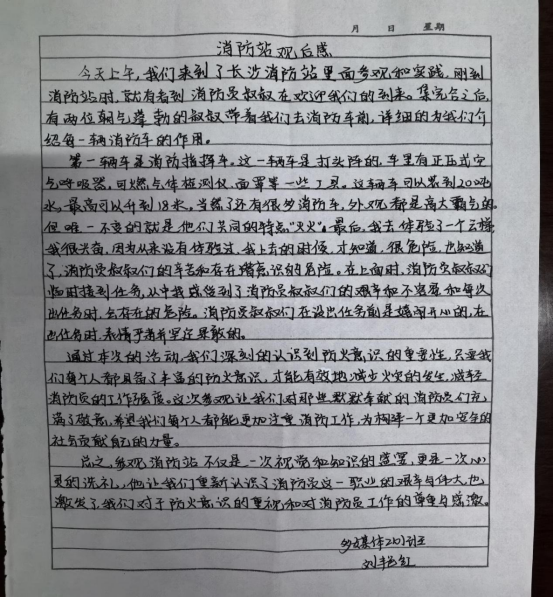 月 日 星期
消防站观后感
今天上午,我们来到了长沙消防站里面参观和实践,刚到
消防站时,就有看到消防员叔叔在欢迎我们的到来。集完合之后,
有两位朝气蓬勃的叔叔带着我们去消防车前,详细的为我们介
绍每一辆消防车的作用。
第一辆车是消防指挥车。这一辆车是打头阵的,车里有正压式空
气呼吸器,可燃气体检测仪,面罩等一些工具。这辆车可以装到20吨
水,最高可以升到18米,当然了还有很多消防车,外观都是高大霸气的。
但唯一不变的就是他们共同的特点"灭火"。最后,我去体验了一个云梯
我很兴奋,因为从来没有体验过,我上去的时候,才知道,很危险,也知道
了,消防员叔叔们的辛苦和存在潜意识的危险。在上面时,消防员叔叔们
临时接到任务,从中我感受到了消防员叔叔们的艰辛和不容易和每次
出任务时,会存在的危险。消防员叔叔们在没出任务前是嬉闹开心的,在
出任务时,表情严肃并坚定果敢的。
通过本次的活动,我们深刻的认识到防火意识的重要性,只要我
们每个人都具备了丰富的防火意识,才能有效地减少火灾的发生,减轻
消防员的工作强度。这次参观让我们对那些默默奉献的消防员们充
满了敬意,希望我们每个人都能更加注重消防工作,为构建一个更加安全的
社会贡献自己的力量。
总之,参观消防站不仅是一次视觉和知识的盛宴,更是一次心
灵的洗礼,他让我们重新认识了消防员这一职业的艰辛与伟大,也
激发了我们对于防火意识的重视和对消防员工作的尊重与感激。
多媒体作201班
刘